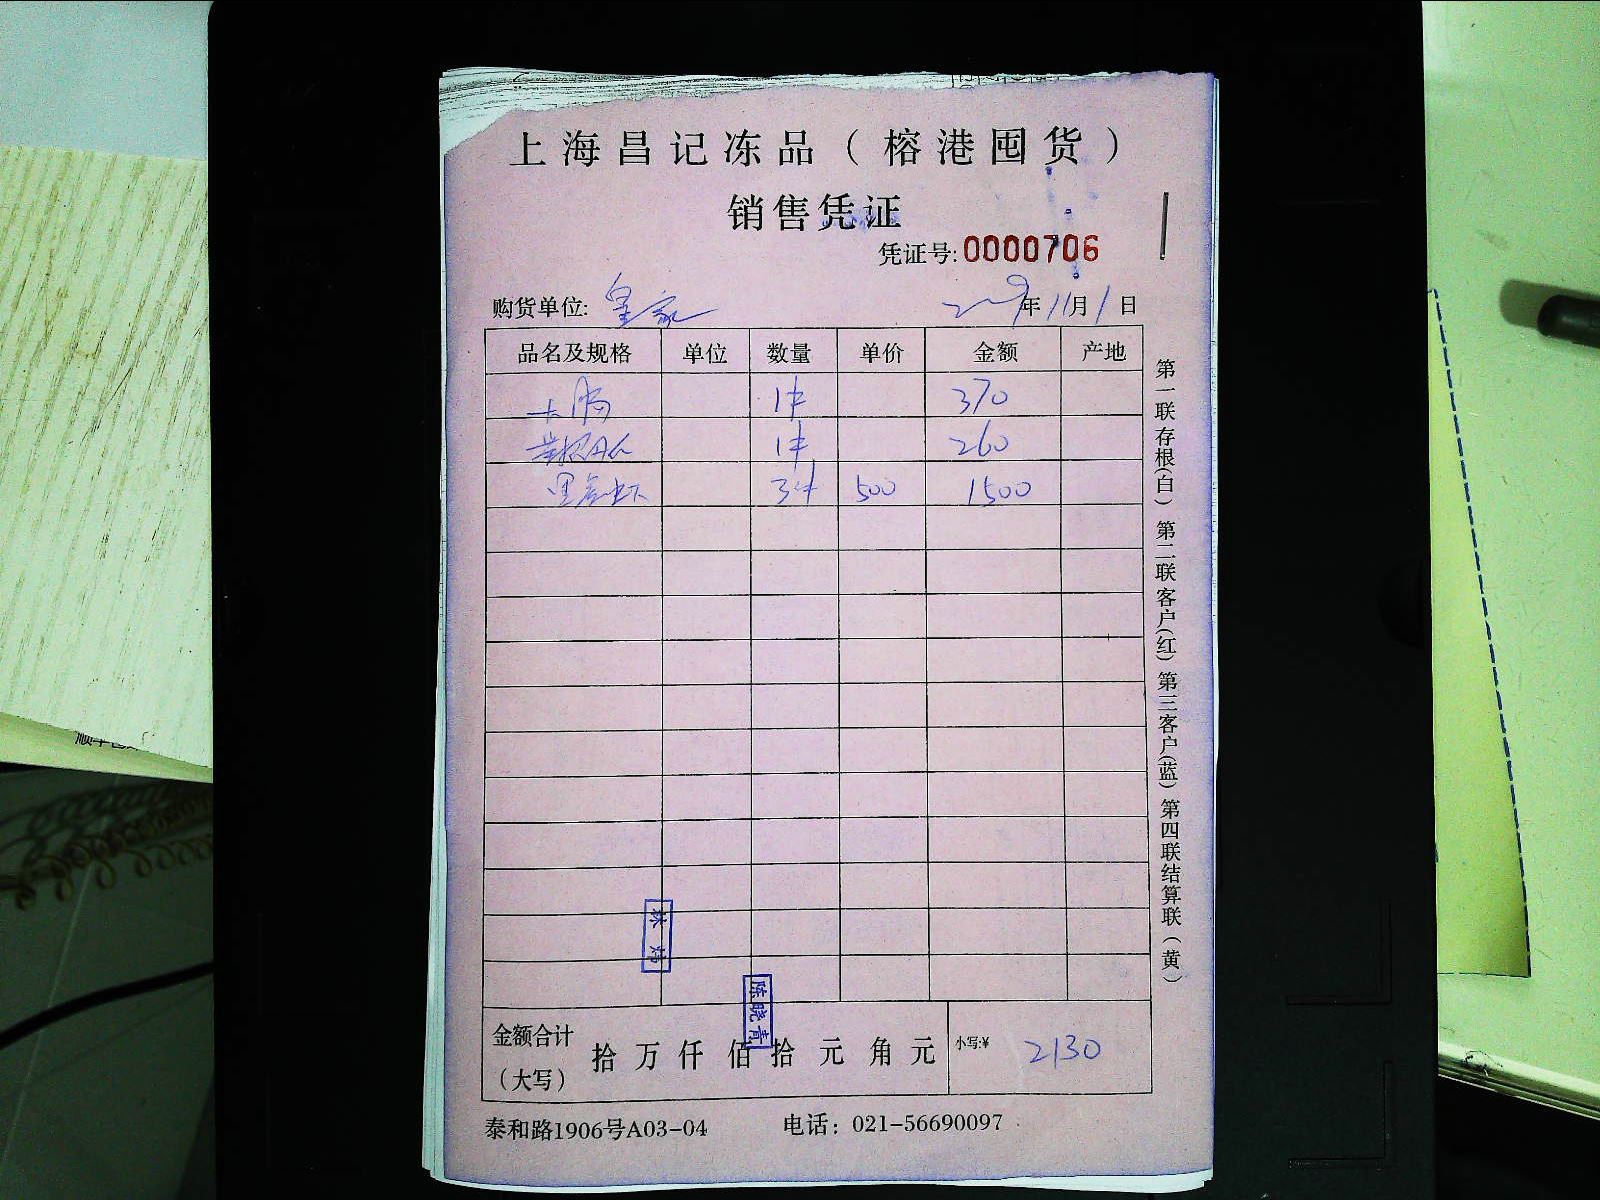 上海昌记冻品（榕港囤货）
销售凭证
凭证号:0000706
购货单位: 皇家 2019年11月1日
品名及规格 单位 数量 单价 金额 产地
1件 370
1件 260
黑虎虾 3件 500 1500
金额合计（大写） 拾万仟佰拾元角元 小写:¥ 2130
陈晓青
泰和路1906号A03-04 电话：021-56690097
第一联存根(白) 第二联客户(红) 第三客户(蓝) 第四联结算联（黄）